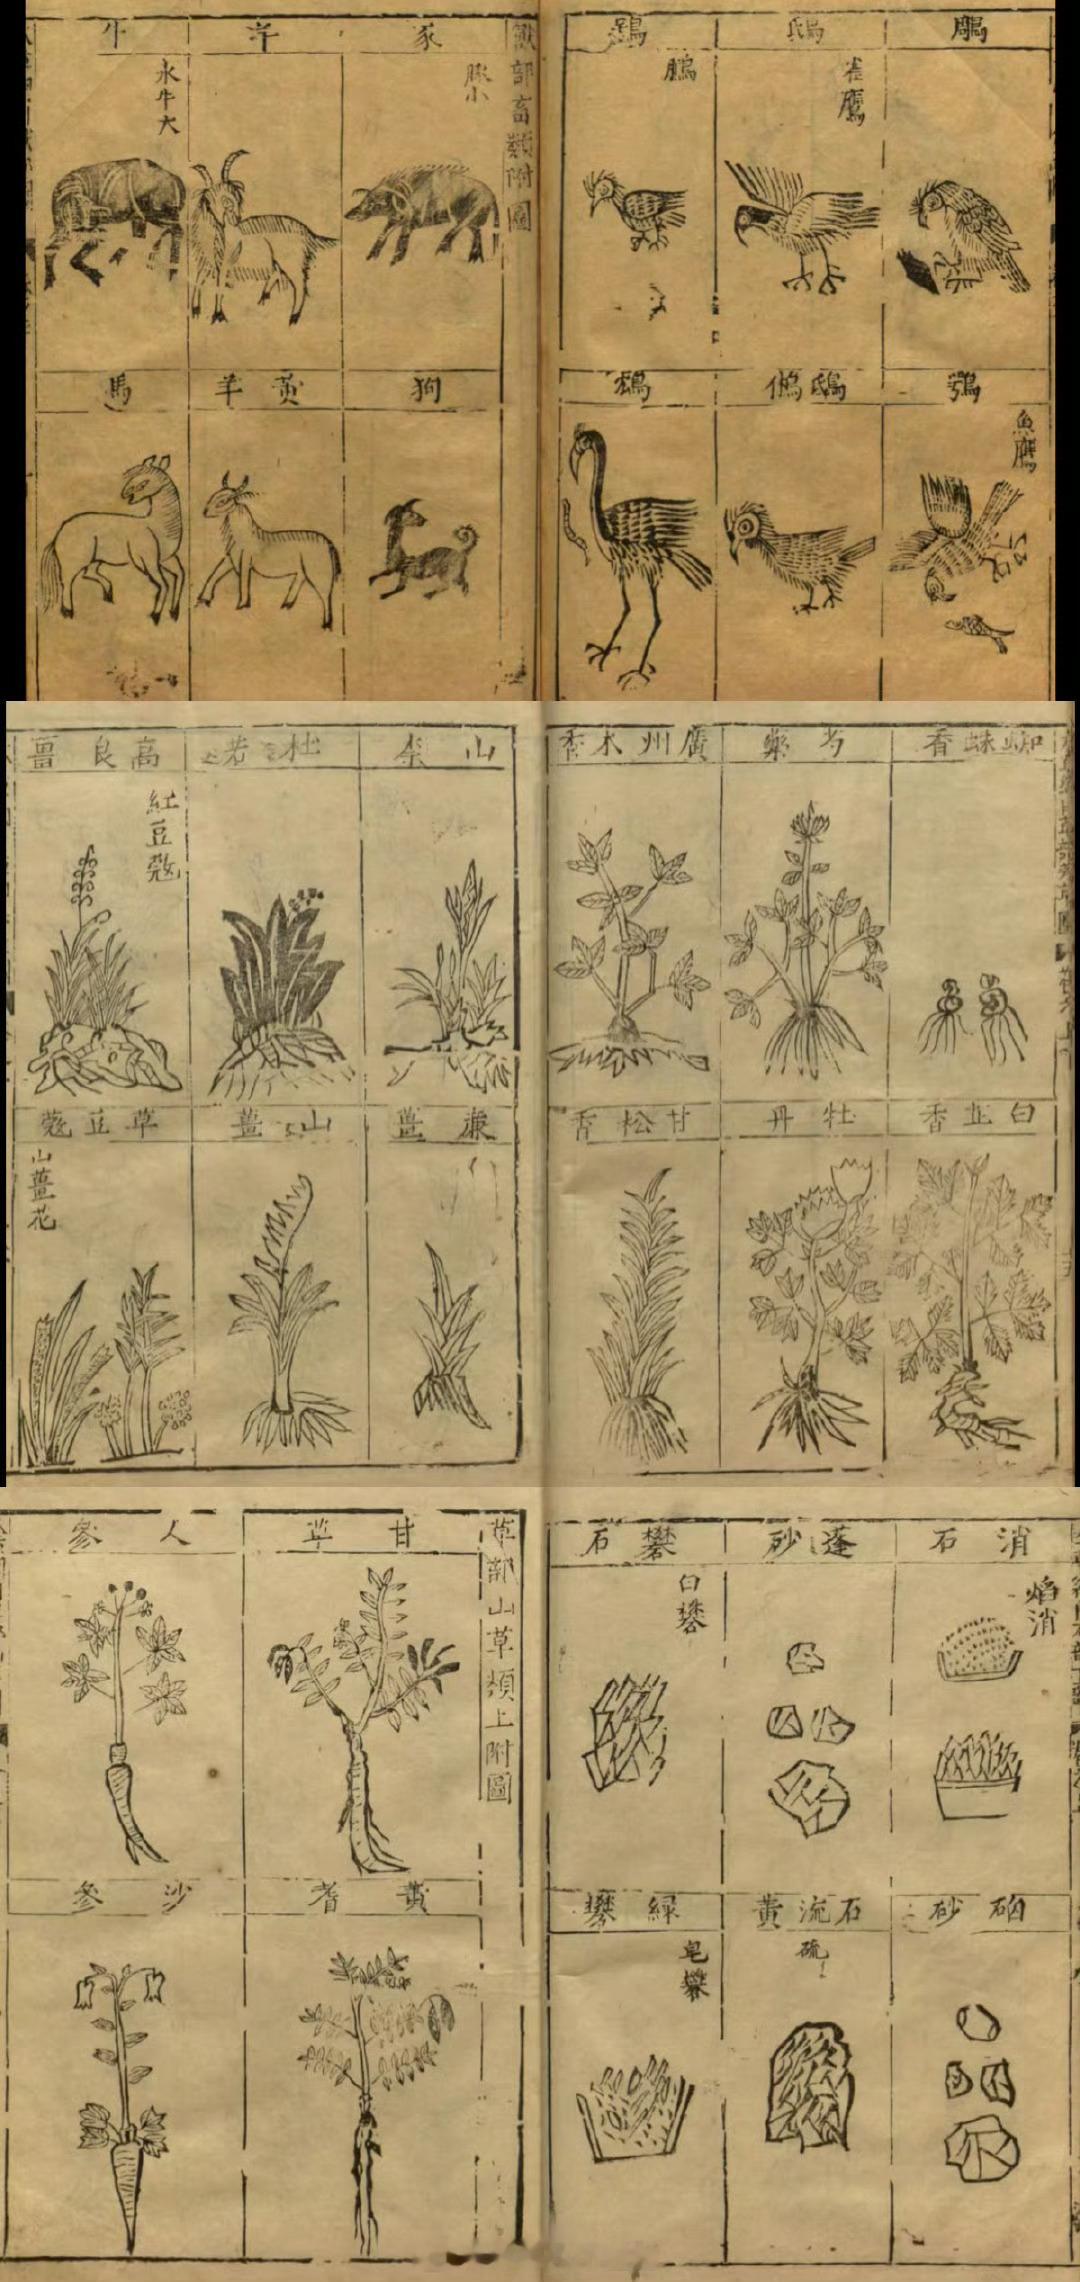 鵰
鴟
雀鷹
鵩
魚鷹
鶚
鴟鵂
鴆
獸部畜類附圖
豕
豚小
羊
牛
水牛大
狗
黃羊
馬
蜘蛛香
芍藥
廣州木香
白芷香
牡丹
甘松香
山柰
杜若
高良薑
紅豆蔻
廉薑
山薑
草豆蔻
山薑花
消石
焰消
蓬砂
礬石
白礬
硇砂
石流黃
硫
綠礬
皂礬
草部山草類上附圖
甘草
人參
黃耆
沙參